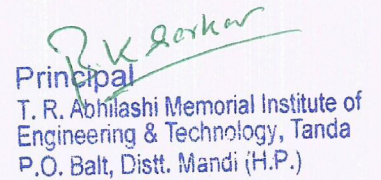 R K Sarkar
Principal
T. R. Abhilashi Memorial Institute of
Engineering & Technology, Tanda
P.O. Balt, Distt. Mandi (H.P.)